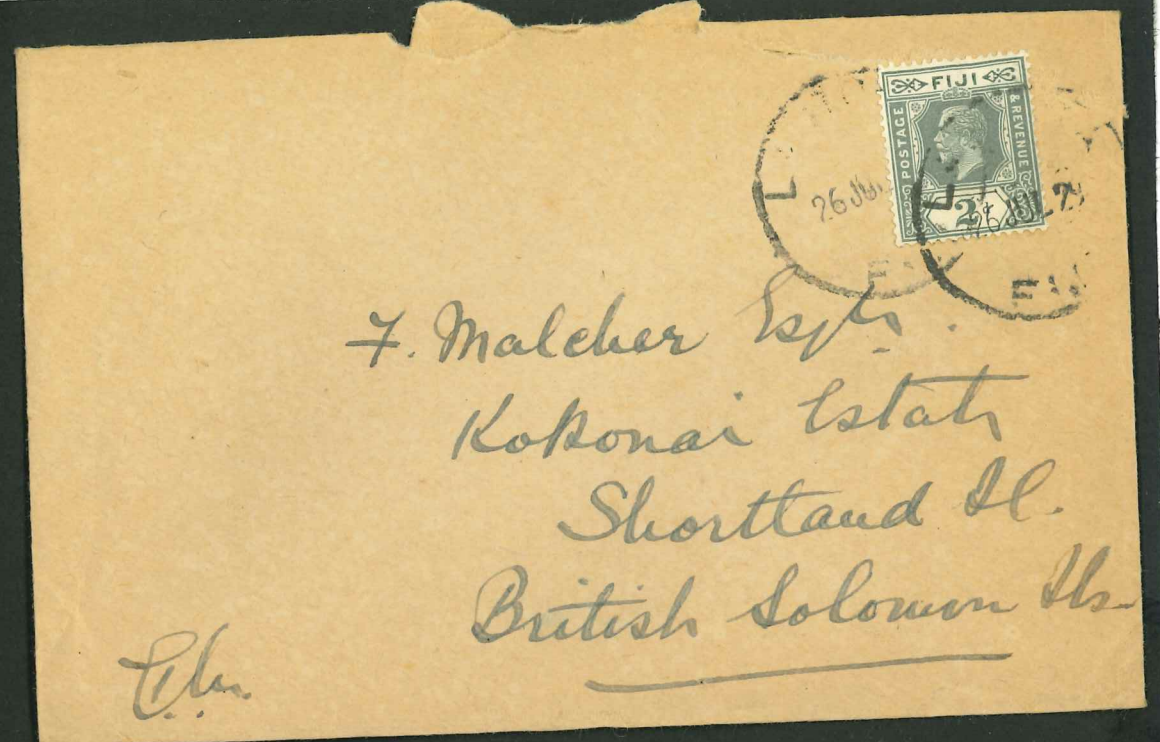 FIJI
POSTAGE
& REVENUE
2d
26 JUL
26 JUL 2
FIJI
F. Malcher Esqr.
Kokonai Estate
Shortland Il.
British Solomon Ils.